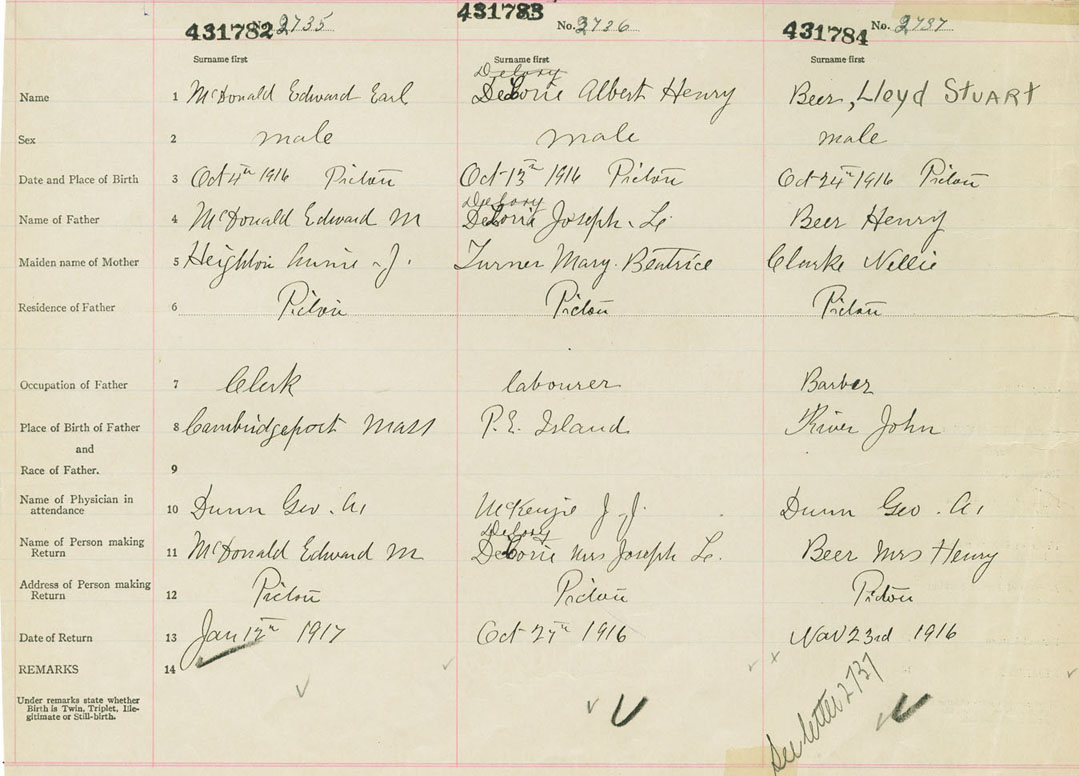 431782 No. 2735 431783 No. 2736 431784 No. 2737
Surname first Surname first Surname first
Delory
Name 1 McDonald Edward Earl DeLorie Albert Henry Beer, Lloyd STUART
Sex 2 male male male
Date and Place of Birth 3 Oct 4th 1916 Pictou Oct 13th 1916 Pictou Oct 24th 1916 Pictou
Delory
Name of Father 4 McDonald Edward M DeLorie Joseph Le Beer Henry
Maiden name of Mother 5 Heighton Annie J. Turner Mary Beatrice Clarke Nellie
Residence of Father 6 Pictou Pictou Pictou
Occupation of Father 7 Clerk labourer Barber
Place of Birth of Father 8 Cambridgeport Mass P.E. Island River John
and
Race of Father. 9
Name of Physician in
attendance 10 Dunn Geo. A. McKenzie J. J. Dunn Geo. A.
Delory
Name of Person making
Return 11 McDonald Edward M DeLorie Mrs Joseph Le. Beer Mrs Henry
Address of Person making
Return 12 Pictou Pictou Pictou
Date of Return 13 Jan 12th 1917 Oct 27th 1916 Nov 23rd 1916
REMARKS 14
Under remarks state whether
Birth is Twin, Triplet, Ille-
gitimate or Still-birth.
See letter 2737